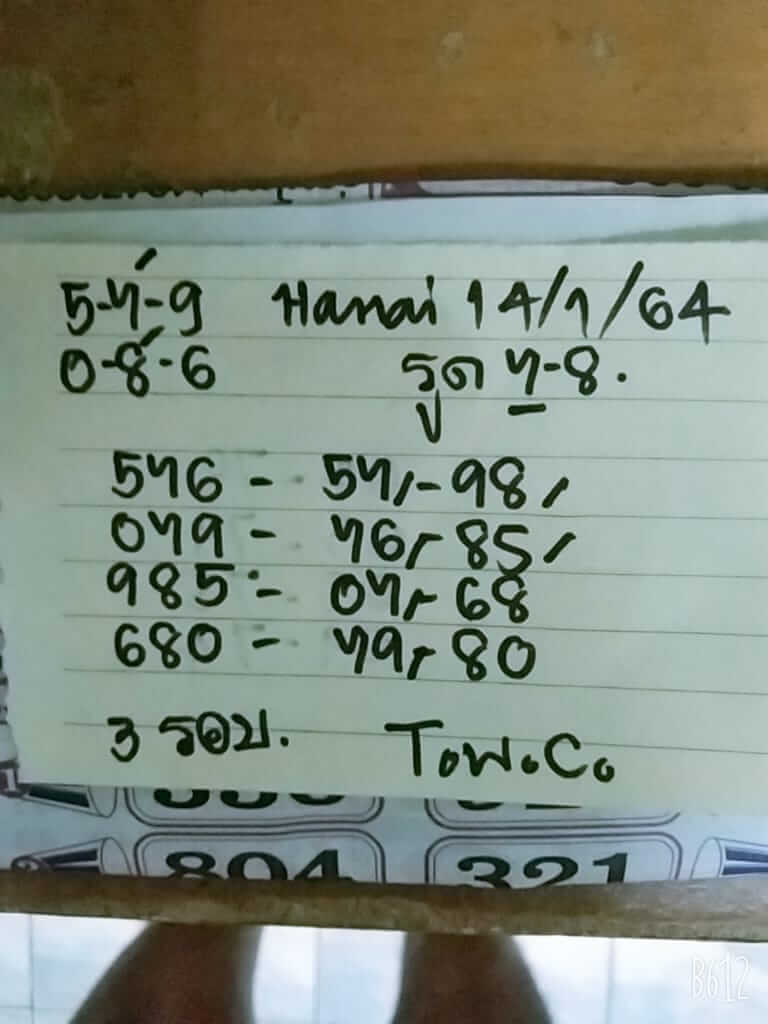 5-7-9 Hanai 14/1/64
0-8-6 รูด 7-8.
576 - 57,-98,
079 - 76,-85,
985 - 07,-68
680 - 79,-80
3 รอบ. T.w.C.
804 321
B612